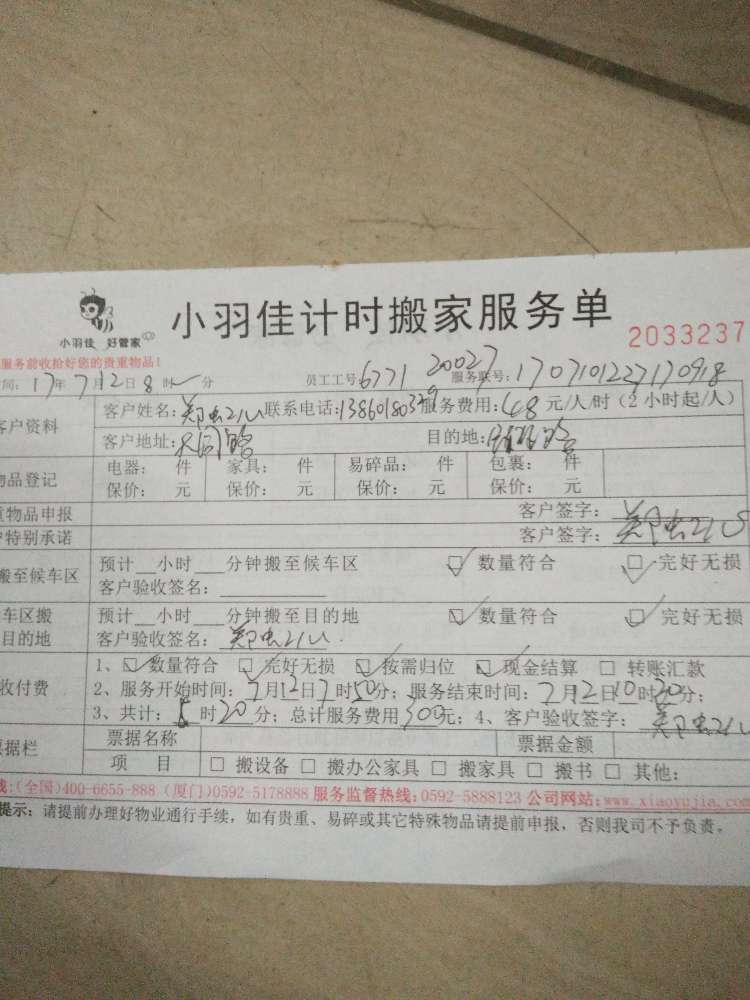 小羽佳 好管家
小羽佳计时搬家服务单
2033237
服务前收拾好您的贵重物品!
间: 17年 7月12日 8时 分 员工工号 6771 20027 服务联号: 1707101227170918
客户资料 客户姓名: 联系电话: 服务费用: 48 元/人/时 (2 小时起/人)
客户地址: 大同路 目的地:
物品登记 电器: 件 家具: 件 易碎品: 件 包裹: 件
保价: 元 保价: 元 保价: 元 保价: 元
重物品申报 客户签字:
户特别承诺 客户签字:
搬至候车区 预计__小时__分钟搬至候车区 ☑ 数量符合 ☑ 完好无损
客户验收签名:
车区搬 预计__小时__分钟搬至目的地 ☑ 数量符合 ☑ 完好无损
目的地 客户验收签名:
收付费 1、☑ 数量符合 ☑ 完好无损 ☑ 按需归位 ☑ 现金结算 □ 转账汇款
2、服务开始时间: 7月12日7时50分; 服务结束时间: 7月2日10时20分;
3、共计: 时20分; 总计服务费用300元; 4、客户验收签字:
票据栏 票据名称 票据金额
项 目 □ 搬设备 □ 搬办公家具 □ 搬家具 □ 搬书 □ 其他:
线:(全国)400-6655-888 (厦门)0592-5178888 服务监督热线:0592-5888123 公司网站:www.xiaoyujia.com
提示: 请提前办理好物业通行手续,如有贵重、易碎或其它特殊物品请提前申报,否则我司不予负责。